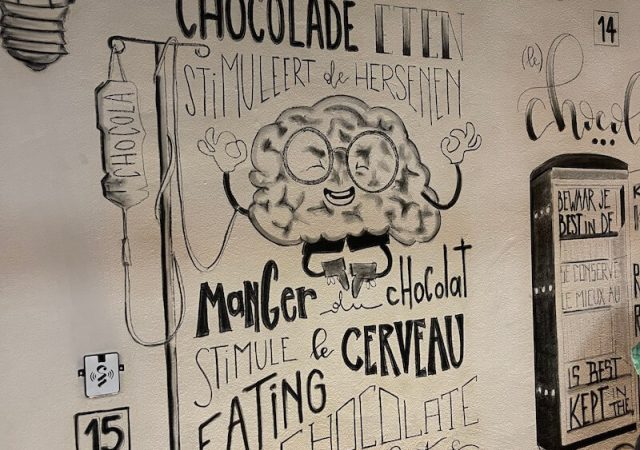 CHOCOLADE ETEN
STIMULEERT de HERSENEN
CHOCOLA
MANGER du chocolat
STIMULE le CERVEAU
EATING
CHOCOLATE
15
14
(le)
BEWAAR JE
BEST IN DE
SE CONSERVE
LE MIEUX AU
IS BEST
KEPT IN THE